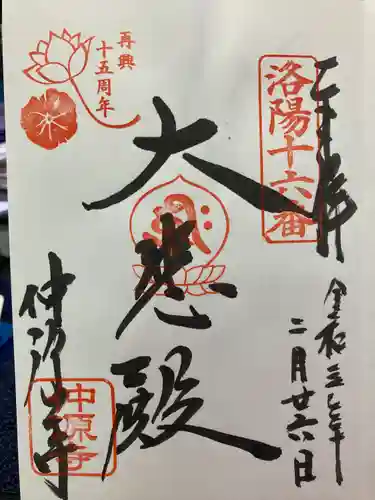 奉拝
洛陽十六番
令和三年
二月廿六日
大悲殿
再興
十五周年
仲源寺
中原寺